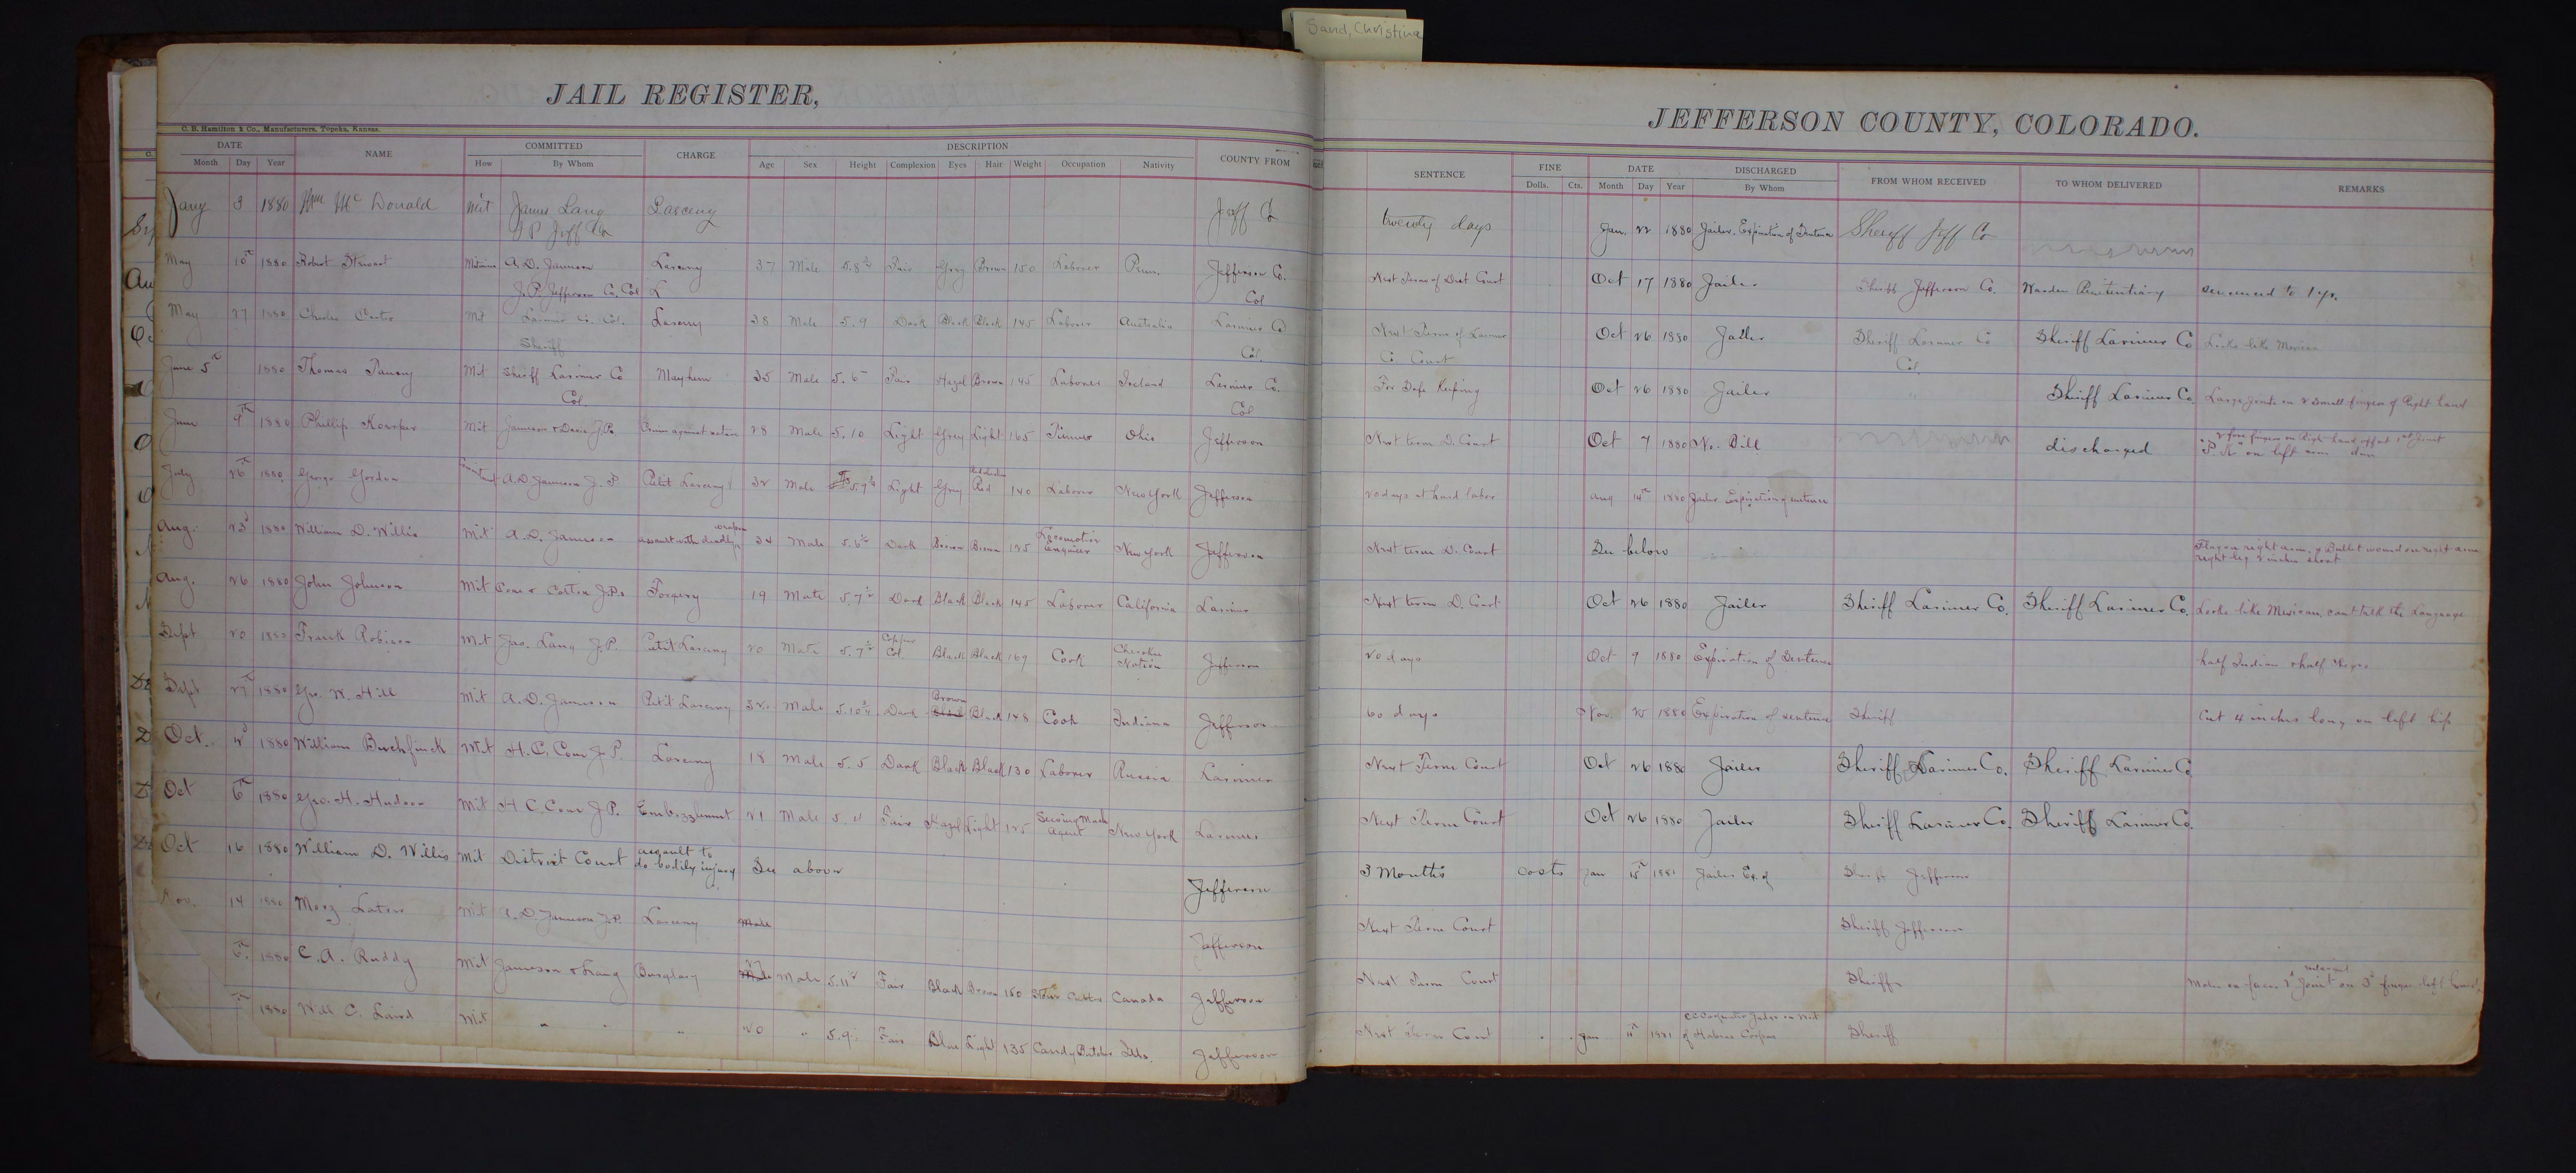 Sand, Christina
JAIL REGISTER,
C. B. Hamilton & Co., Manufacturers, Topeka, Kansas.
DATE NAME COMMITTED CHARGE DESCRIPTION COUNTY FROM
Month Day Year How By Whom Age Sex Height Complexion Eyes Hair Weight Occupation Nativity
Jany 3 1880 Wm Mc Donald Mit James Lang Larceny Jeff Co
J P Jeff Co
May 10th 1880 Robert Stewart Mittimus A. D. Jameson Larceny 37 Male 5.8½ Fair Gray Brown 150 Laborer Penn. Jefferson Co.
J. P. Jefferson Co. Col Col
May 27 1880 Charles Mit Larimer Co. Col. Larceny 38 Male 5.9 Dark Black Black 145 Laborer Australia Larimer Co
Sheriff Col.
June 5th 1880 Thomas Mit Sheriff Larimer Co Mayhem 35 Male 5.6 Fair Hazel Brown 145 Laborer Ireland Larimer Co.
Col. Col
June 9th 1880 Phillip Mit Jameson & Davis J.Ps Crime against nature 28 Male 5.10 Light Grey Light 165 Tinner Ohio Jefferson
July 26th 1880 George Gordon A. D. Jameson J. P Petit Larceny 32 Male 5.9¾ Light Gray Red 140 Laborer New York Jefferson
weapon
Aug. 23d 1880 William D. Willis Mit A. D. Jameson assault with deadly 34 Male 5.6½ Dark Brown Brown 125 Locomotive Engineer New York Jefferson
Aug. 26 1880 John Johnson Mit Cone & Cotton J.Ps Forgery 19 Male 5.7½ Dark Black Black 145 Laborer California Larimer
Sept 20 1880 Frank Robinson Mit Jas. Lang J.P. Petit Larceny 20 Male 5.7½ Copper Col. Black Black 169 Cook Cherokee Nation Jefferson
Sept 27th 1880 Geo. W. Hill Mit A. D. Jameson Petit Larceny 32 Male 5.10¾ Dark Brown Black Black 148 Cook Indiana Jefferson
Oct. 2d 1880 William Burchfinck Mit H. C. Cone J. P. Larceny 18 Male 5.5 Dark Black Black 130 Laborer Russia Larimer
Oct 6th 1880 Geo. H. Hudson Mit H C. Cone J. P. Embezzlement 21 Male 5.11 Fair Hazel Light 125 Sewing Mach Agent New York Larimer
Oct 16 1880 William D. Willis Mit District Court assault to do bodily injury See above Jefferson
Nov. 14 1880 Mit A. D. Jameson J.P. Larceny Male Jefferson
1880 C. A. Ruddy Mit Jameson & Lang Burglary Male 5.11½ Fair Black Brown 160 Stone Cutter Canada Jefferson
1880 Will C. Laird Mit " " " 20 " 5.9 Fair Blue Light 135 Candy Butcher Ills. Jefferson
JEFFERSON COUNTY, COLORADO.
SENTENCE FINE DATE DISCHARGED FROM WHOM RECEIVED TO WHOM DELIVERED REMARKS
Dolls. Cts. Month Day Year By Whom
twenty days Jan. 22 1880 Jailer. Expiration of Sentence Sheriff Jeff Co
Next Term of Dist Court Oct 17 1880 Jailer Sheriff Jefferson Co. Warden Penitentiary sentenced to 1 yr.
Next Term of Larimer Oct 26 1880 Jailer Sheriff Larimer Co Sheriff Larimer Co Looks like Mexican
Co Court Col.
For Safe Keeping Oct 26 1880 Jailer " Sheriff Larimer Co. Large joints on 2 small fingers of Right hand
Next term D. Court Oct 7 1880 No. Bill discharged 2 fore fingers on Right hand off at 1st joint
P. K on left arm
20 days at hard labor Aug 14th 1880 Jailer Expiration of sentence
Next term D. Court See below Flag on right arm. & Bullet wound on right arm
right leg 2 inches short
Next term D. Court Oct 26 1880 Jailer Sheriff Larimer Co. Sheriff Larimer Co. Looks like Mexican, cant talk the Language
20 days Oct 9 1880 Expiration of Sentence half Indian & half Negro
60 days Nov. 25 1880 Expiration of sentence Sheriff Cut 4 inches long on left hip
Next Term Court Oct 26 1880 Jailer Sheriff Larimer Co. Sheriff Larimer Co
Next Term Court Oct 26 1880 Jailer Sheriff Larimer Co. Sheriff Larimer Co.
3 Months costs Jan 15th 1881 Jailer Ex. of Sheriff Jefferson
Next Term Court Sheriff Jefferson
Next Term Court Sheriff Moles on face 2d joint on 3d finger left hand
Next Term Court Jan 11th 1881 of Habeas Corpus Sheriff